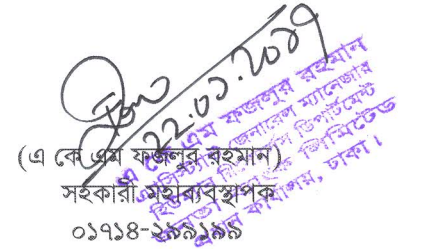 ২২.০১.২০১৭
(এ কে এম ফজলুর রহমান)
সহকারী মহাব্যবস্থাপক
০১৭১৪-২৯৯১৯৯
এ কে এম ফজলুর রহমান
এসিস্ট্যান্ট জেনারেল ম্যানেজার
ডিপার্টমেন্ট
লিমিটেড
প্রধান কার্যালয়, ঢাকা।